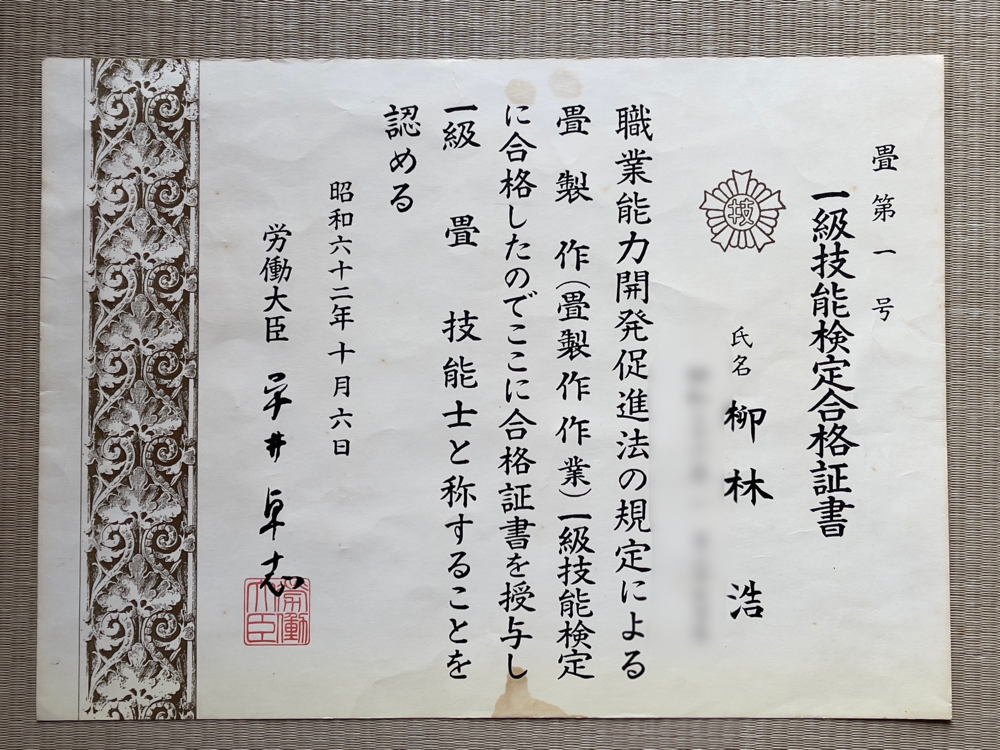 畳第一号
一級技能検定合格証書
技
氏名 柳林 浩
職業能力開発促進法の規定による
畳製作(畳製作作業)一級技能検定
に合格したのでここに合格証書を授与し
一級 畳 技能士と称することを
認める
昭和六十二年十月六日
労働大臣 平井卓志
労働大臣